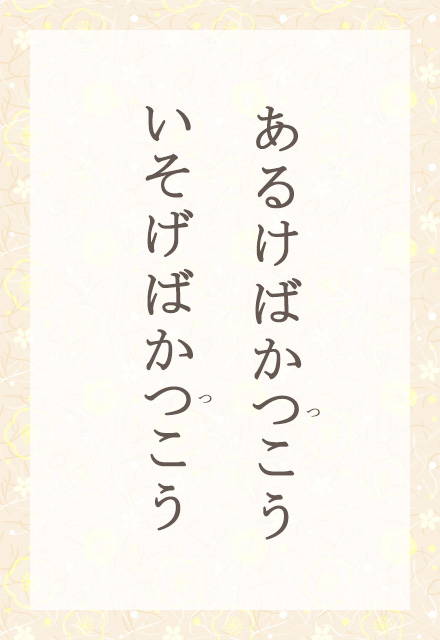 あるけばかつこう
いそげばかつこう
っ
っ